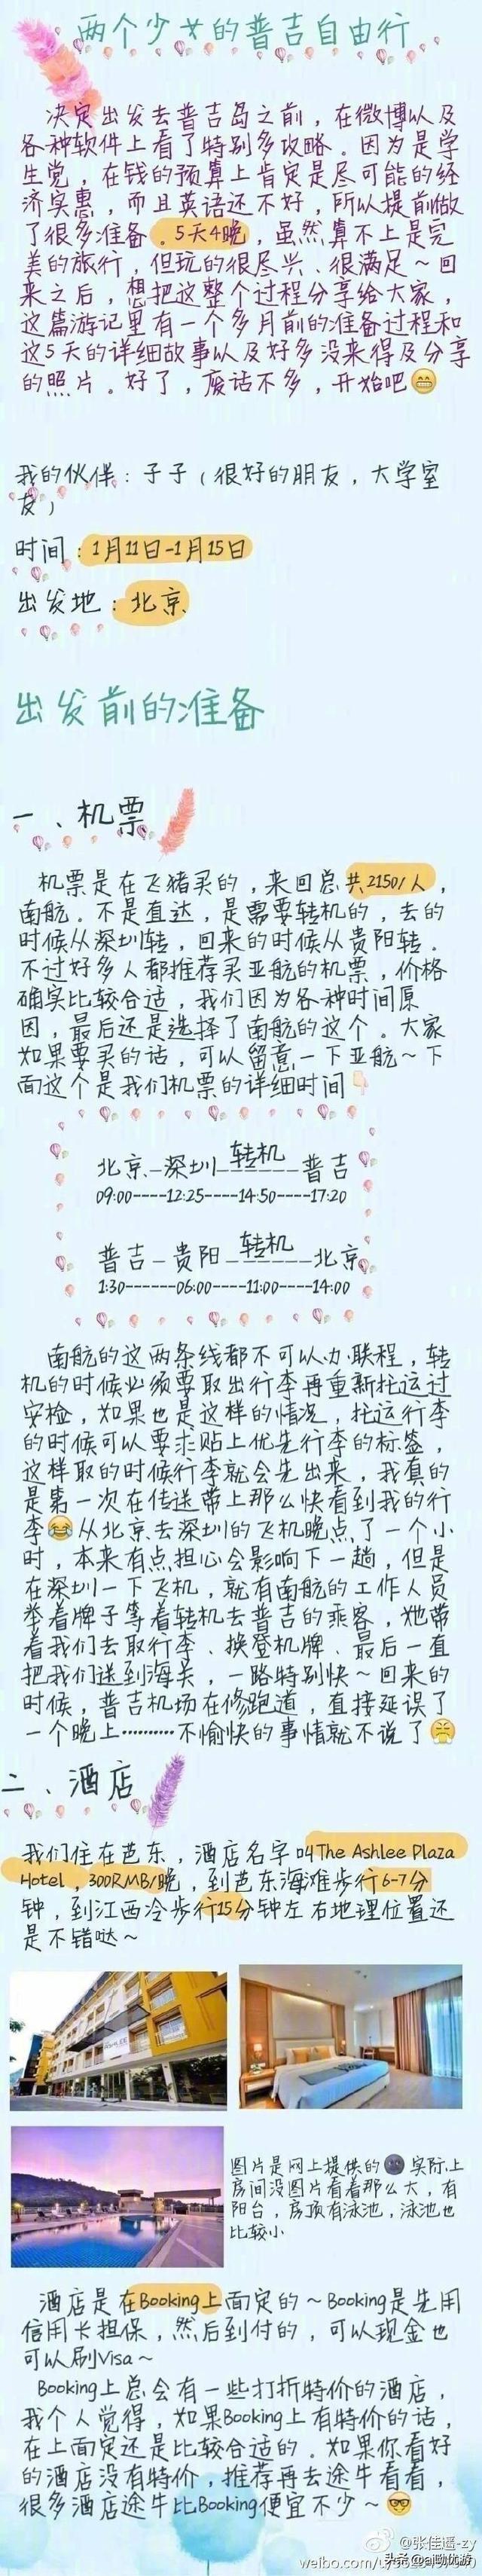 两个少女的普吉自由行
决定出发去普吉岛之前，在微博以及
各种软件上看了特别多攻略。因为是学
生党，在钱的预算上肯定是尽可能的经
济实惠，而且英语还不好，所以提前做
了很多准备。5天4晚，虽然算不上是完
美的旅行，但玩的很尽兴、很满足～回
来之后，想把这整个过程分享给大家，
这篇游记里有一个多月前的准备过程和
这5天的详细故事以及好多没来得及分享
的照片。好了，废话不多，开始吧😁
我的伙伴：子子（很好的朋友，大学室
友）
时间：1月11日-1月15日
出发地：北京
出发前的准备
一、机票
机票是在飞猪买的，来回总共2150/人，
南航。不是直达，是需要转机的，去的
时候从深圳转，回来的时候从贵阳转。
不过好多人都推荐买亚航的机票，价格
确实比较合适，我们因为各种时间原
因，最后还是选择了南航的这个。大家
如果要买的话，可以留意一下亚航～下
面这个是我们机票的详细时间👇🏻
北京—深圳—转机—普吉
09:00----12:25----14:50----17:20
普吉—贵阳—转机—北京
1:30------06:00----11:00----14:00
南航的这两条线都不可以办联程，转
机的时候必须要取出行李再重新托运过
安检，如果也是这样的情况，托运行李
的时候可以要求贴上优先行李的标签，
这样取的时候行李就会先出来，我真的
是第一次在传送带上那么快看到我的行
李😂从北京去深圳的飞机晚点了一个小
时，本来有点担心会影响下一趟，但是
在深圳一下飞机，就有南航的工作人员
举着牌子等着转机去普吉的乘客，她带
着我们去取行李、换登机牌、最后一直
把我们送到海关，一路特别快～回来的
时候，普吉机场在修跑道，直接延误了
一个晚上………不愉快的事情就不说了😤
二、酒店
我们住在芭东，酒店名字叫The Ashlee Plaza
Hotel，300RMB/晚，到芭东海滩步行6-7分
钟，到江西冷步行15分钟左右地理位置还
是不错哒～
图片是网上提供的🌚实际上
房间没图片看着那么大，有
阳台，房顶有泳池，泳池也
比较小
酒店是在Booking上面定的～Booking是先用
信用卡担保，然后到付的，可以现金也
可以刷Visa～
Booking上总会有一些打折特价的酒店，
我个人觉得，如果Booking上有特价的话，
在上面定还是比较合适的。如果你看好
的酒店没有特价，推荐再去途牛看看，
很多酒店途牛比Booking便宜不少～🤓
@张佳遥-zy
头条@ai呦优游